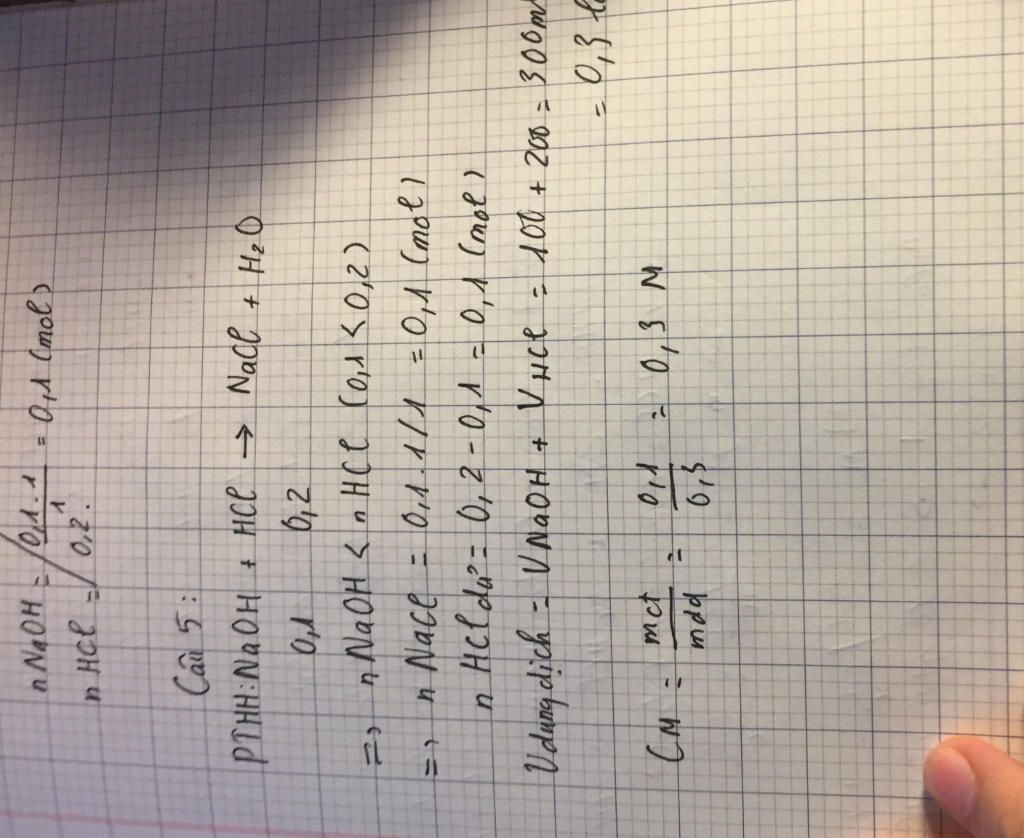 nNaOH = 0,1.1 = 0,1 (mol)
nHCl = 0,2.1
Câu 5:
PTHH: NaOH + HCl → NaCl + H₂O
0,1 0,2
=> nNaOH < nHCl (0,1 < 0,2)
=> nNaCl = 0,1.1/1 = 0,1 (mol)
nHCl dư = 0,2 - 0,1 = 0,1 (mol)
Vdung dịch = VNaOH + VHCl = 100 + 200 = 300m
= 0,3
CM = mct/mdd = 0,1/0,3 = 0,3 M